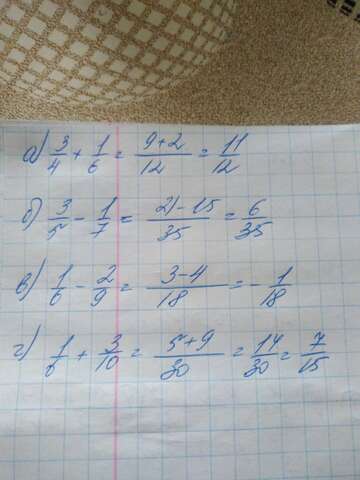 а) 3/4 + 1/6 = (9+2)/12 = 11/12
б) 3/5 - 1/7 = (21-15)/35 = 6/35
в) 1/6 - 2/9 = (3-4)/18 = - 1/18
г) 1/6 + 3/10 = (5+9)/30 = 14/30 = 7/15